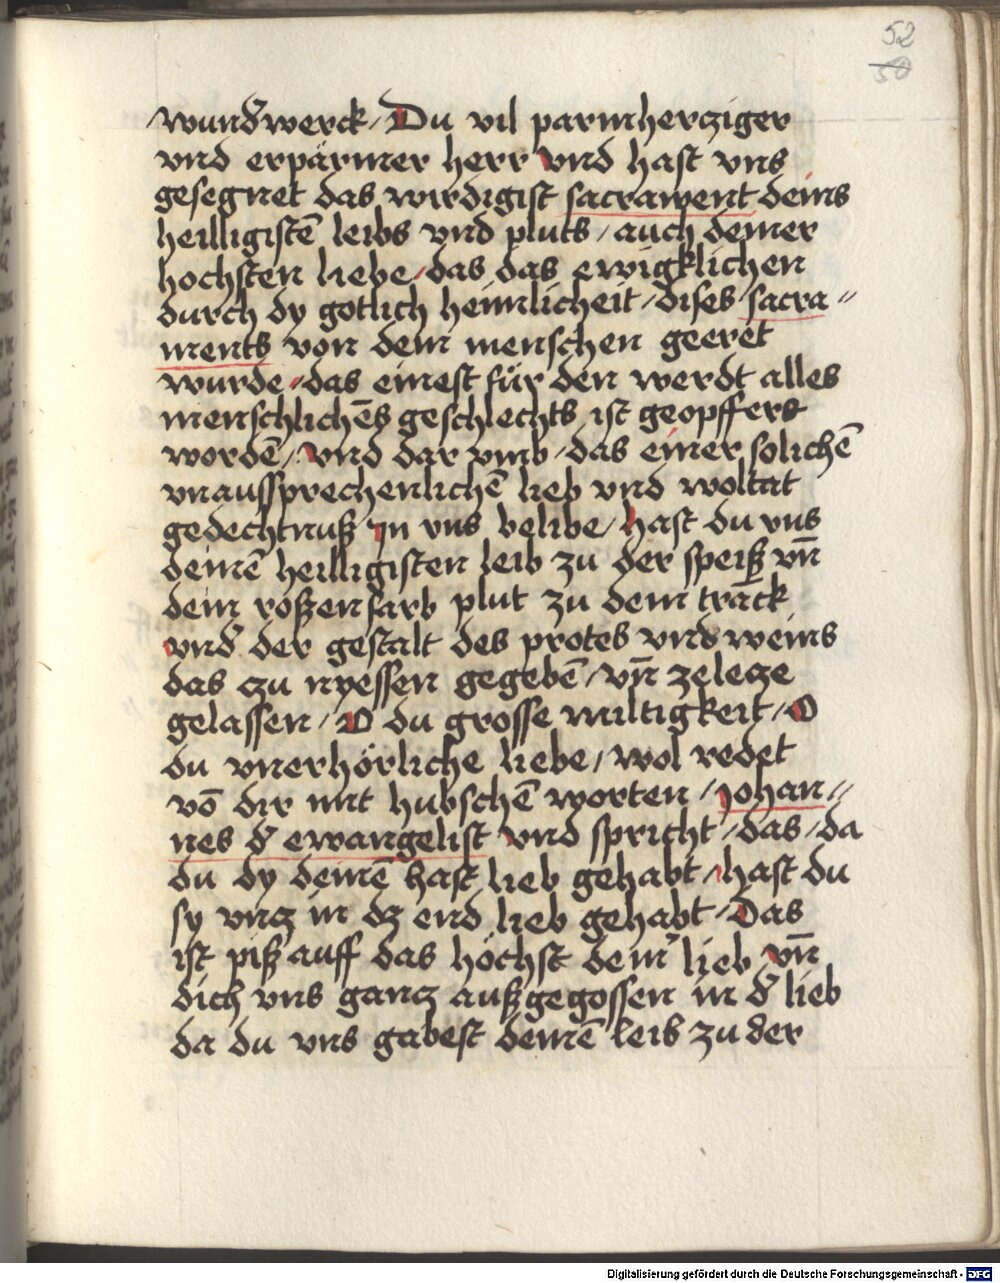 52
50
wund̄werck / Du vil parmhercziger
vnd erpärmer herr vnd hast vns
gesegnet das wirdigist sacrament deins
heilligistē leibs vnd pluts / auch deiner
hochsten liebe / das das ewigklichen
durch dy gotlich heimlicheit / dises sacra //
ments von dem menschen geeret
wurde / das einest für den werdt alles
menschlichēs geschlechts ist geopffert
wordē / vnd dar vmb / das einer solichē
vnaussprechenlichē lieb vnd woltat
gedechtnuß in vns belibe / hast du vns
deinē heilligisten leib zu der speiß vn̄
dein roßenfarb plut zu dem tranck
vnd̄ der gestalt des protes vnd weins
das czu nyessen gegebē / vn̄ zelecze
gelassen / O du grosse miltigkeit / O
du vnerhörliche liebe / wol redet
vō dir mit hubschē worten / Johan //
nes d̄ ewangelist vnd spricht / das / da
du dy deinē hast lieb gehabt / hast du
sy vncz in dz end lieb gehabt / Das
ist piß auff das höchst deinr lieb vn̄
dich vns gancz außgegossen in d̄ lieb
da du vns gabest deinē leib zu der
Digitalisierung gefördert durch die Deutsche Forschungsgemeinschaft - DFG